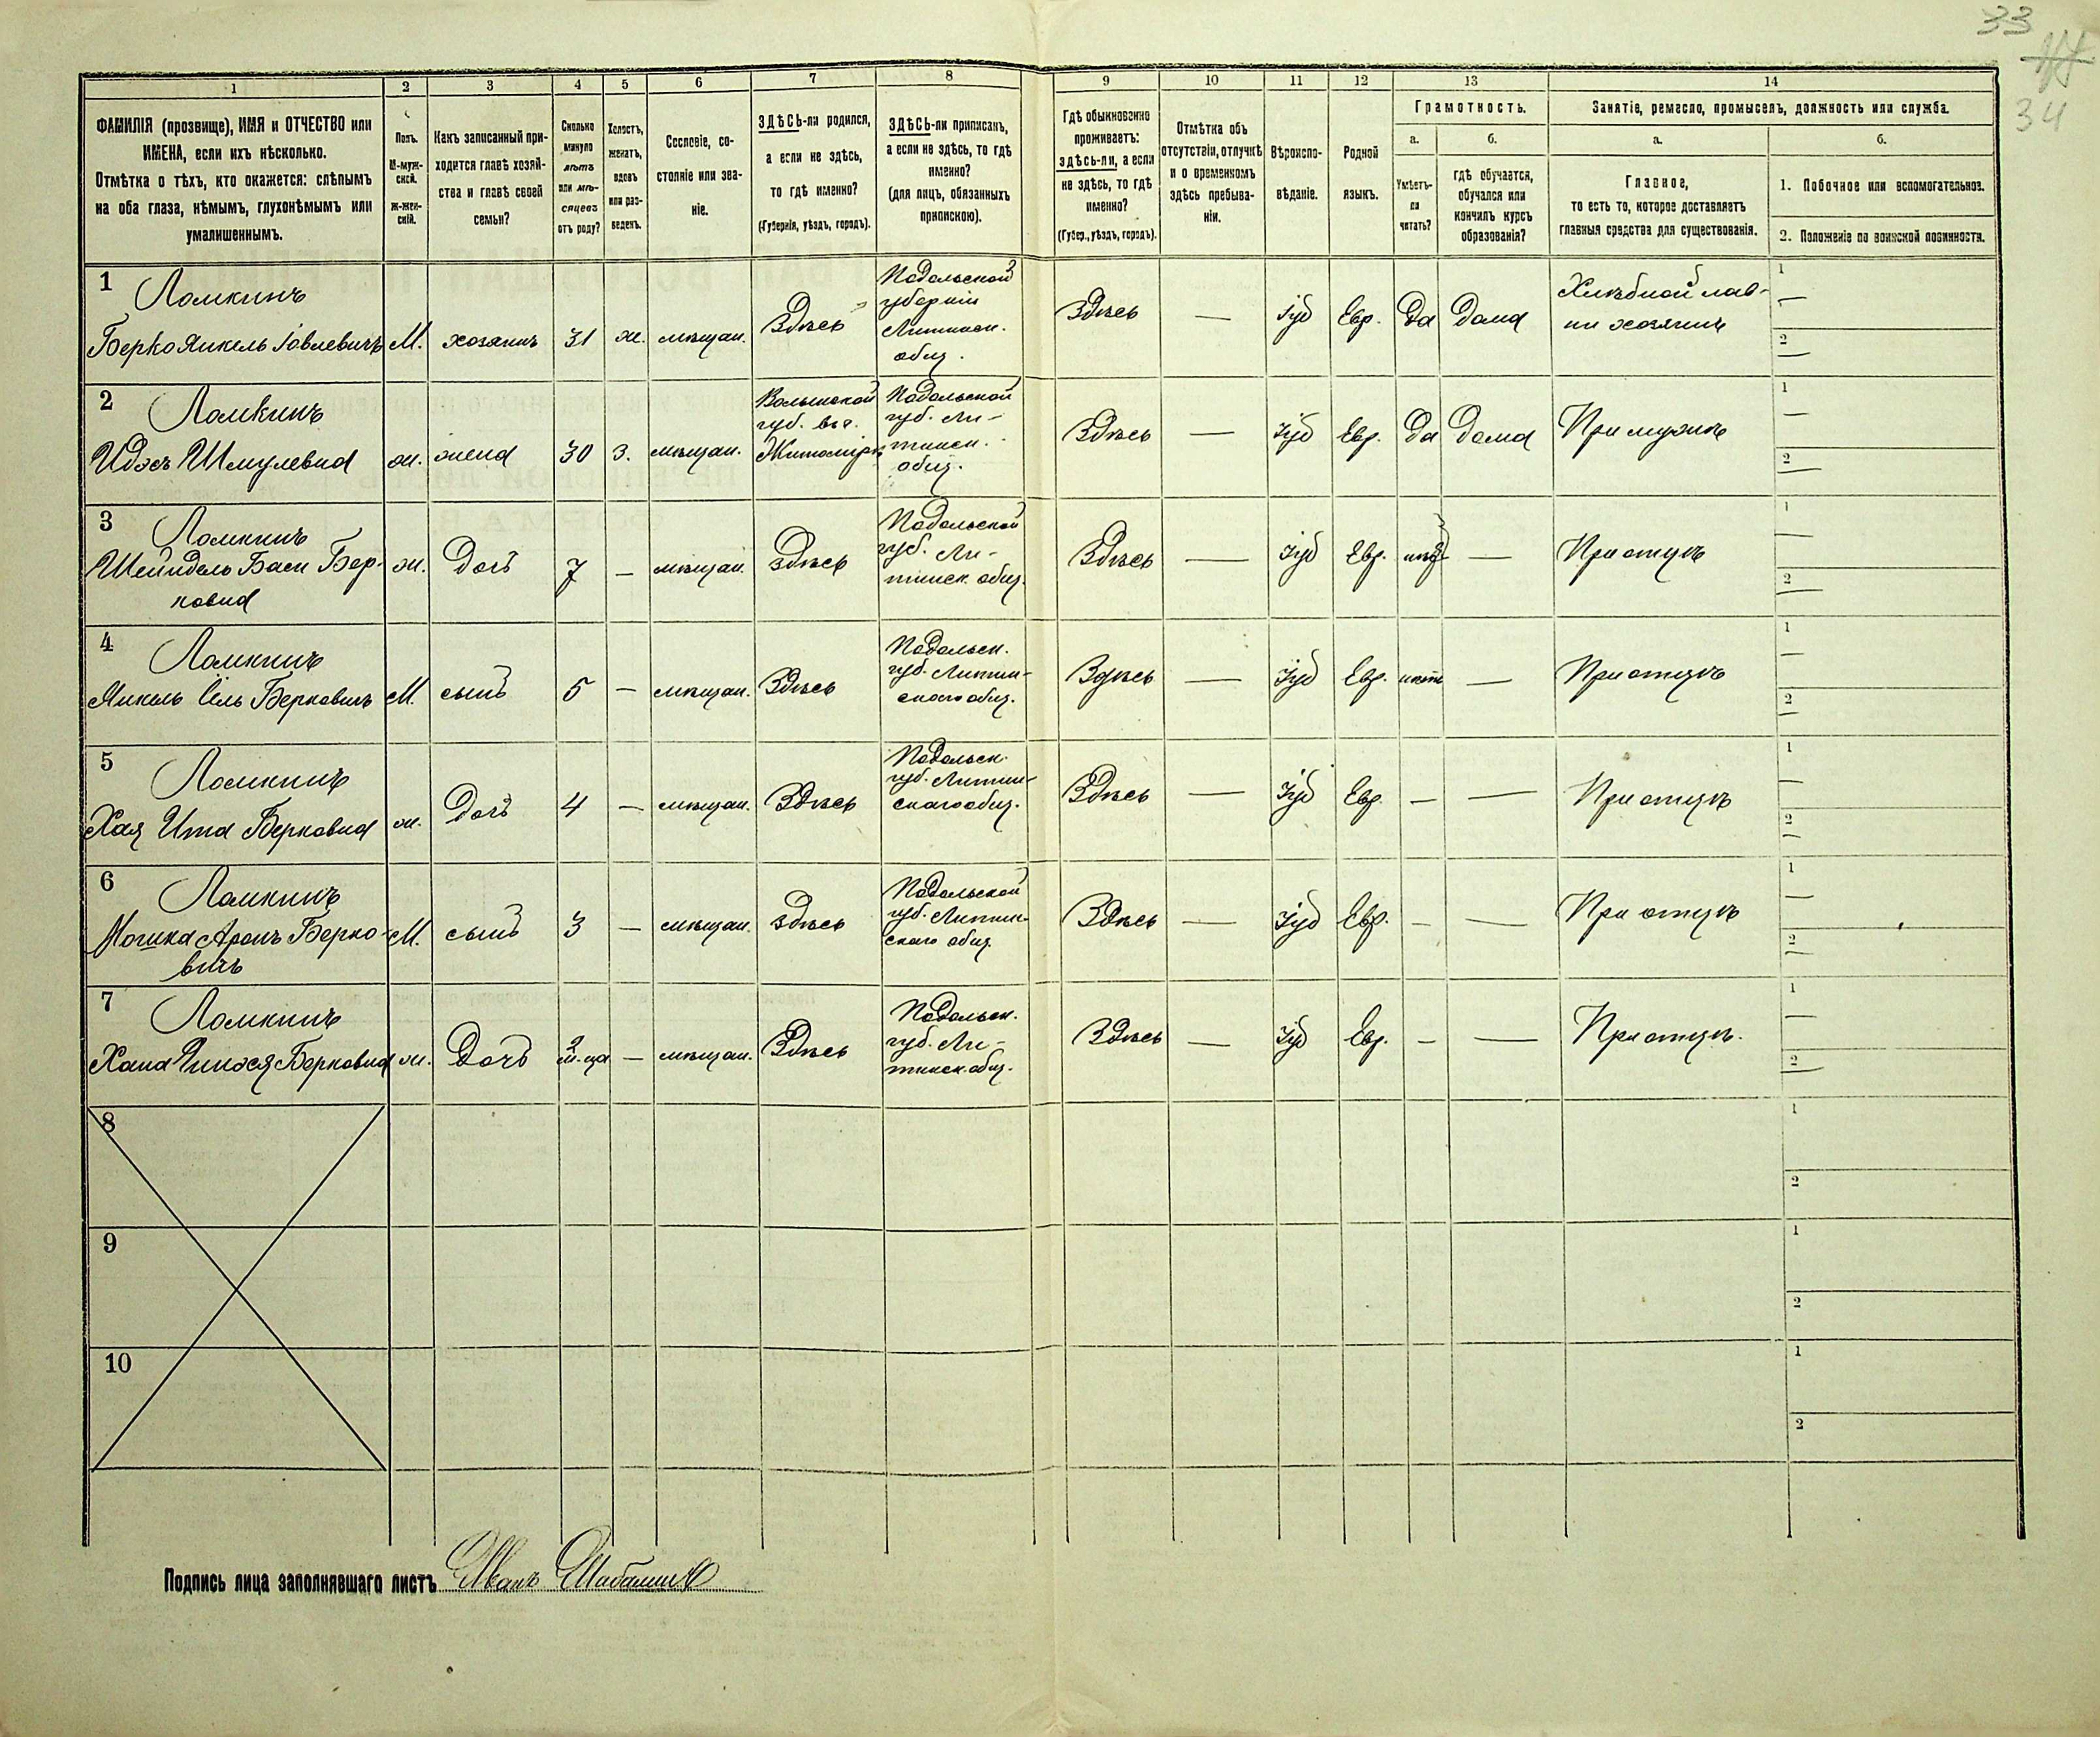 33
34
1
2
3
4
5
6
7
8
9
10
11
12
13
14
ФАМИЛІЯ (прозвище), ИМЯ и ОТЧЕСТВО или
ИМЕНА, если ихъ нѣсколько.
Отмѣтка о тѣхъ, кто окажется: слѣпымъ
на оба глаза, нѣмымъ, глухонѣмымъ или
умалишеннымъ.
Полъ.
М-муж-
ской.
ж-жен-
скій.
Какъ записанный при-
ходится главѣ хозяй-
ства и главѣ своей
семьи?
Сколько
минуло
лѣтъ
или мѣ-
сяцевъ
отъ роду?
Холостъ,
женатъ,
вдовъ
или раз-
веденъ.
Сословіе, со-
стояніе или зва-
ніе.
ЗДѢСЬ-ли родился,
а если не здѣсь,
то гдѣ именно?
(Губернія, уѣздъ, городъ).
ЗДѢСЬ-ли приписанъ,
а если не здѣсь, то гдѣ
именно?
(для лицъ, обязанныхъ
припискою).
Гдѣ обыкновенно
проживаетъ:
здѣсь-ли, а если
не здѣсь, то гдѣ
именно?
(Губер., уѣздъ, городъ).
Отмѣтка объ
отсутствіи, отлучкѣ
и о временномъ
здѣсь пребыва-
ніи.
Вѣроиспо-
вѣданіе.
Родной
языкъ.
Грамотность.
а.
Умѣетъ-
ли
читать?
б.
гдѣ обучается,
обучался или
кончилъ курсъ
образованія?
Занятіе, ремесло, промыселъ, должность или служба.
а.
Главное,
то есть то, которое доставляетъ
главныя средства для существованія.
б.
1. Побочное или вспомогательное.
2. Положеніе по воинской повинности.
1
Ломкинъ
Берко Янкель Іовлевичъ
М. хозяинъ 31 ж. мѣщан. Здѣсь
Подольской
губерніи
Литинск.
общ.
Здѣсь — Іуд Евр. Да Дома
Хлѣбной лав-
ки хозяинъ
1 —
2 —
2
Ломкинъ
Идэсъ Шмулевна
ж. жена 30 з. мѣщан.
Волынской
губ. въ г.
Житомірѣ
Подольской
губ. Ли-
тинск.
общ.
Здѣсь — Іуд Евр. Да Дома При мужѣ
1 —
2 —
3
Ломкинъ
Шейндель Бася Бер-
ковна
ж. Дочь 7 — мѣщан. здѣсь
Подольской
губ. Ли-
тинск. общ.
Здѣсь — Іуд Евр. нѣтъ — При отцѣ
1 —
2 —
4
Ломкинъ
Янкель Ёль Берковичъ
М. сынъ 5 — мѣщан. Здѣсь
Подольск.
губ. Литин-
скаго общ.
Здѣсь — Іуд Евр. нѣтъ — При отцѣ
1 —
2 —
5
Ломкинъ
Хая Ита Берковна
ж. Дочь 4 — мѣщан. Здѣсь
Подольск.
губ. Литин-
скаго общ.
Здѣсь — Іуд Евр. — — При отцѣ
1 —
2 —
6
Ломкинъ
Мошка Аронъ Берко-
вичъ
М. сынъ 3 — мѣщан. здѣсь
Подольской
губ. Литин-
скаго общ.
Здѣсь — Іуд Евр. — — При отцѣ
1 —
2 —
7
Ломкинъ
Хана Берковна
ж. Дочь м-ца — мѣщан. Здѣсь
Подольск.
губ. Ли-
тинск. общ.
Здѣсь — Іуд Евр. — — При отцѣ.
1 —
2 —
8
1
2
9
1
2
10
1
2
Подпись лица заполнявшаго листъ Иванъ